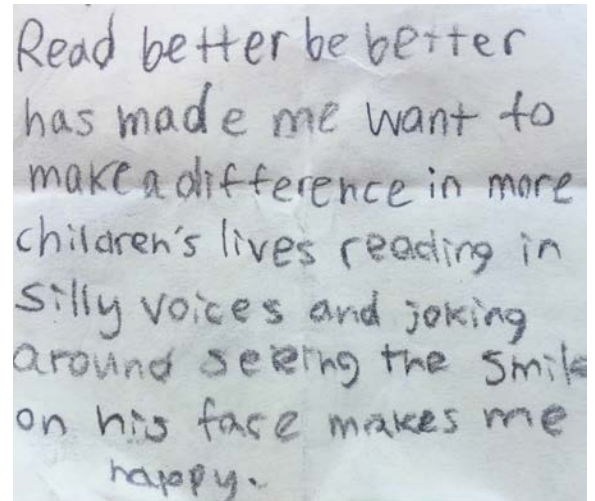 Read better be better
has made me want to
make a difference in more
children's lives reading in
silly voices and joking
around seeing the smile
on his face makes me
happy.